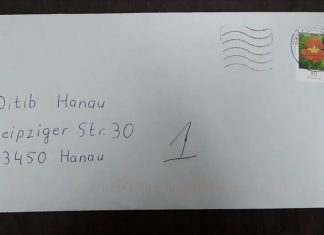 Ditib Hanau
Leipziger Str. 30
63450 Hanau
1